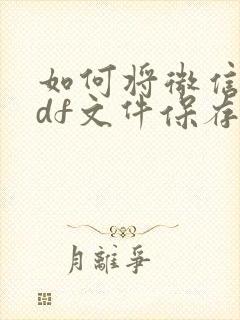 如何将微信
df文件保存
月離爭